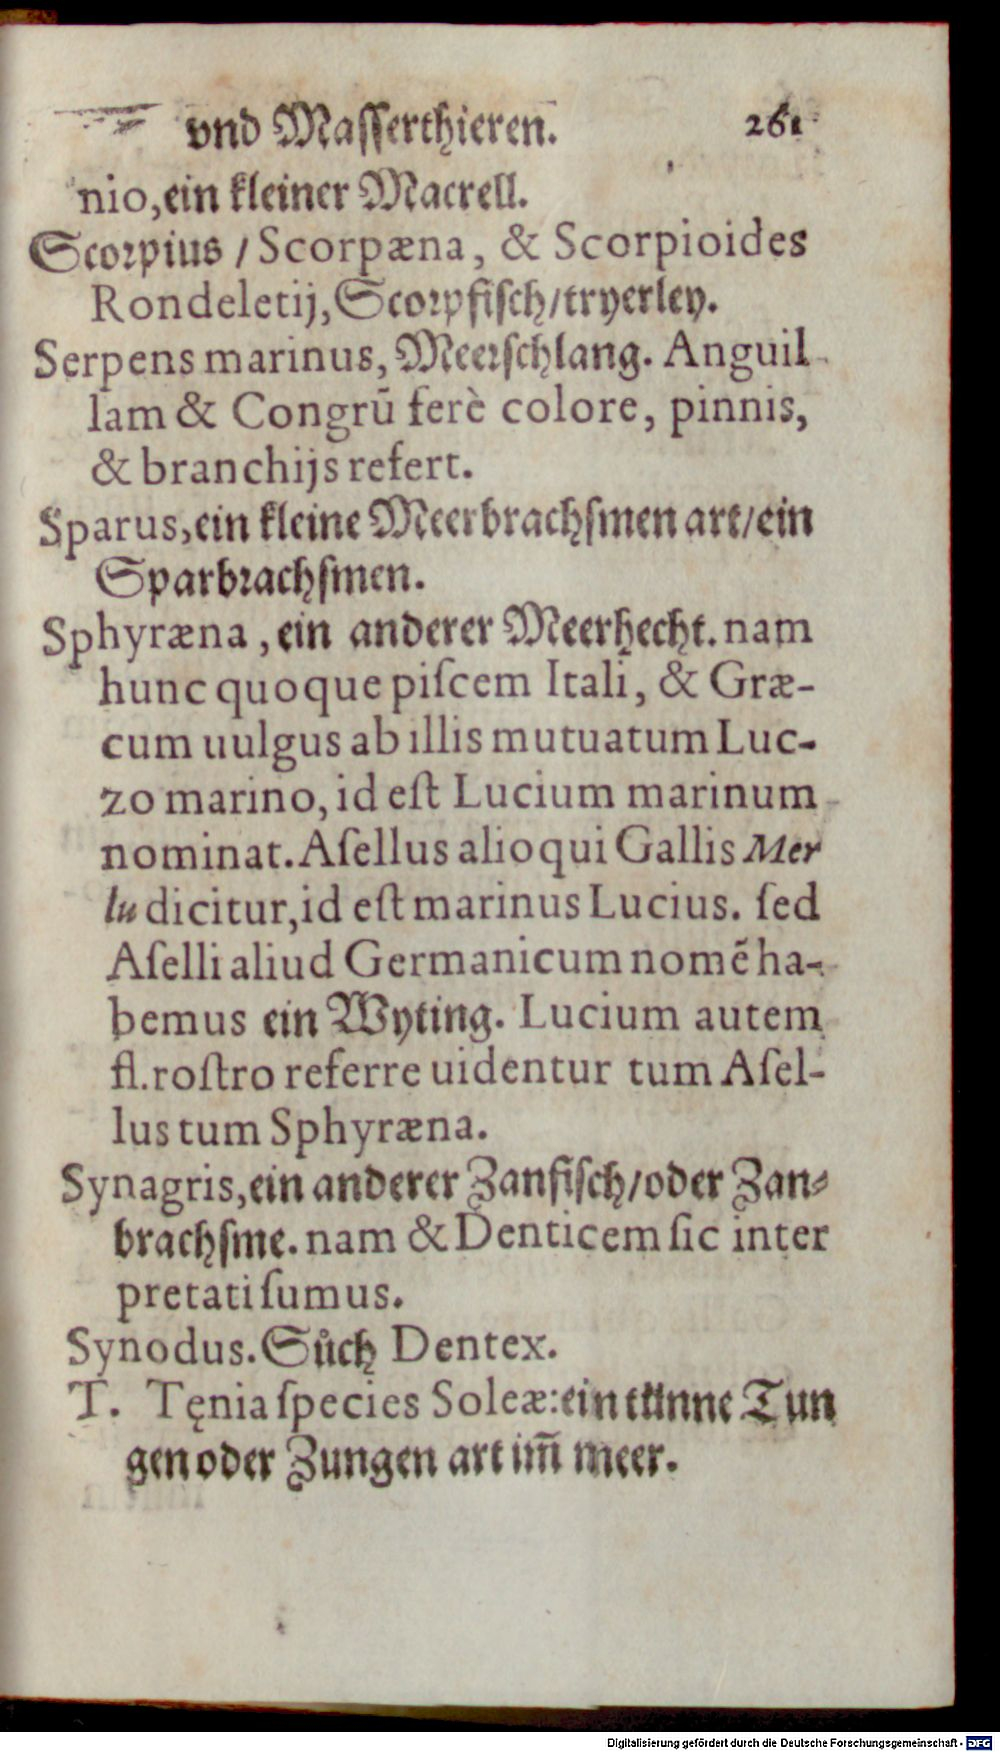 vnd Wasserthieren. 261
nio, ein kleiner Macrell.
Scorpius / Scorpæna, & Scorpioides
Rondeletij, Scorpfiſch / tryerley.
Serpens marinus, Meerſchlang. Anguil
lam & Congrū ferè colore, pinnis,
& branchijs refert.
Sparus, ein kleine Meerbrachſmen art / ein
Sparbrachſmen.
Sphyræna, ein anderer Meerhecht. nam
hunc quoque piſcem Itali, & Græ-
cum uulgus ab illis mutuatum Luc-
zo marino, id eſt Lucium marinum
nominat. Aſellus alioqui Gallis Mer
lu dicitur, id eſt marinus Lucius. ſed
Aſelli aliud Germanicum nomē ha-
bemus ein Wyting. Lucium autem
fl. roſtro referre uidentur tum Aſel-
lus tum Sphyræna.
Synagris, ein anderer Zanfiſch / oder Zan-
brachſme. nam & Denticem ſic inter
pretati ſumus.
Synodus. Sůch Dentex.
T. Tęnia ſpecies Soleæ: ein tünne Tun
gen oder Zungen art im̄ meer.
Digitalisierung gefördert durch die Deutsche Forschungsgemeinschaft - DFG